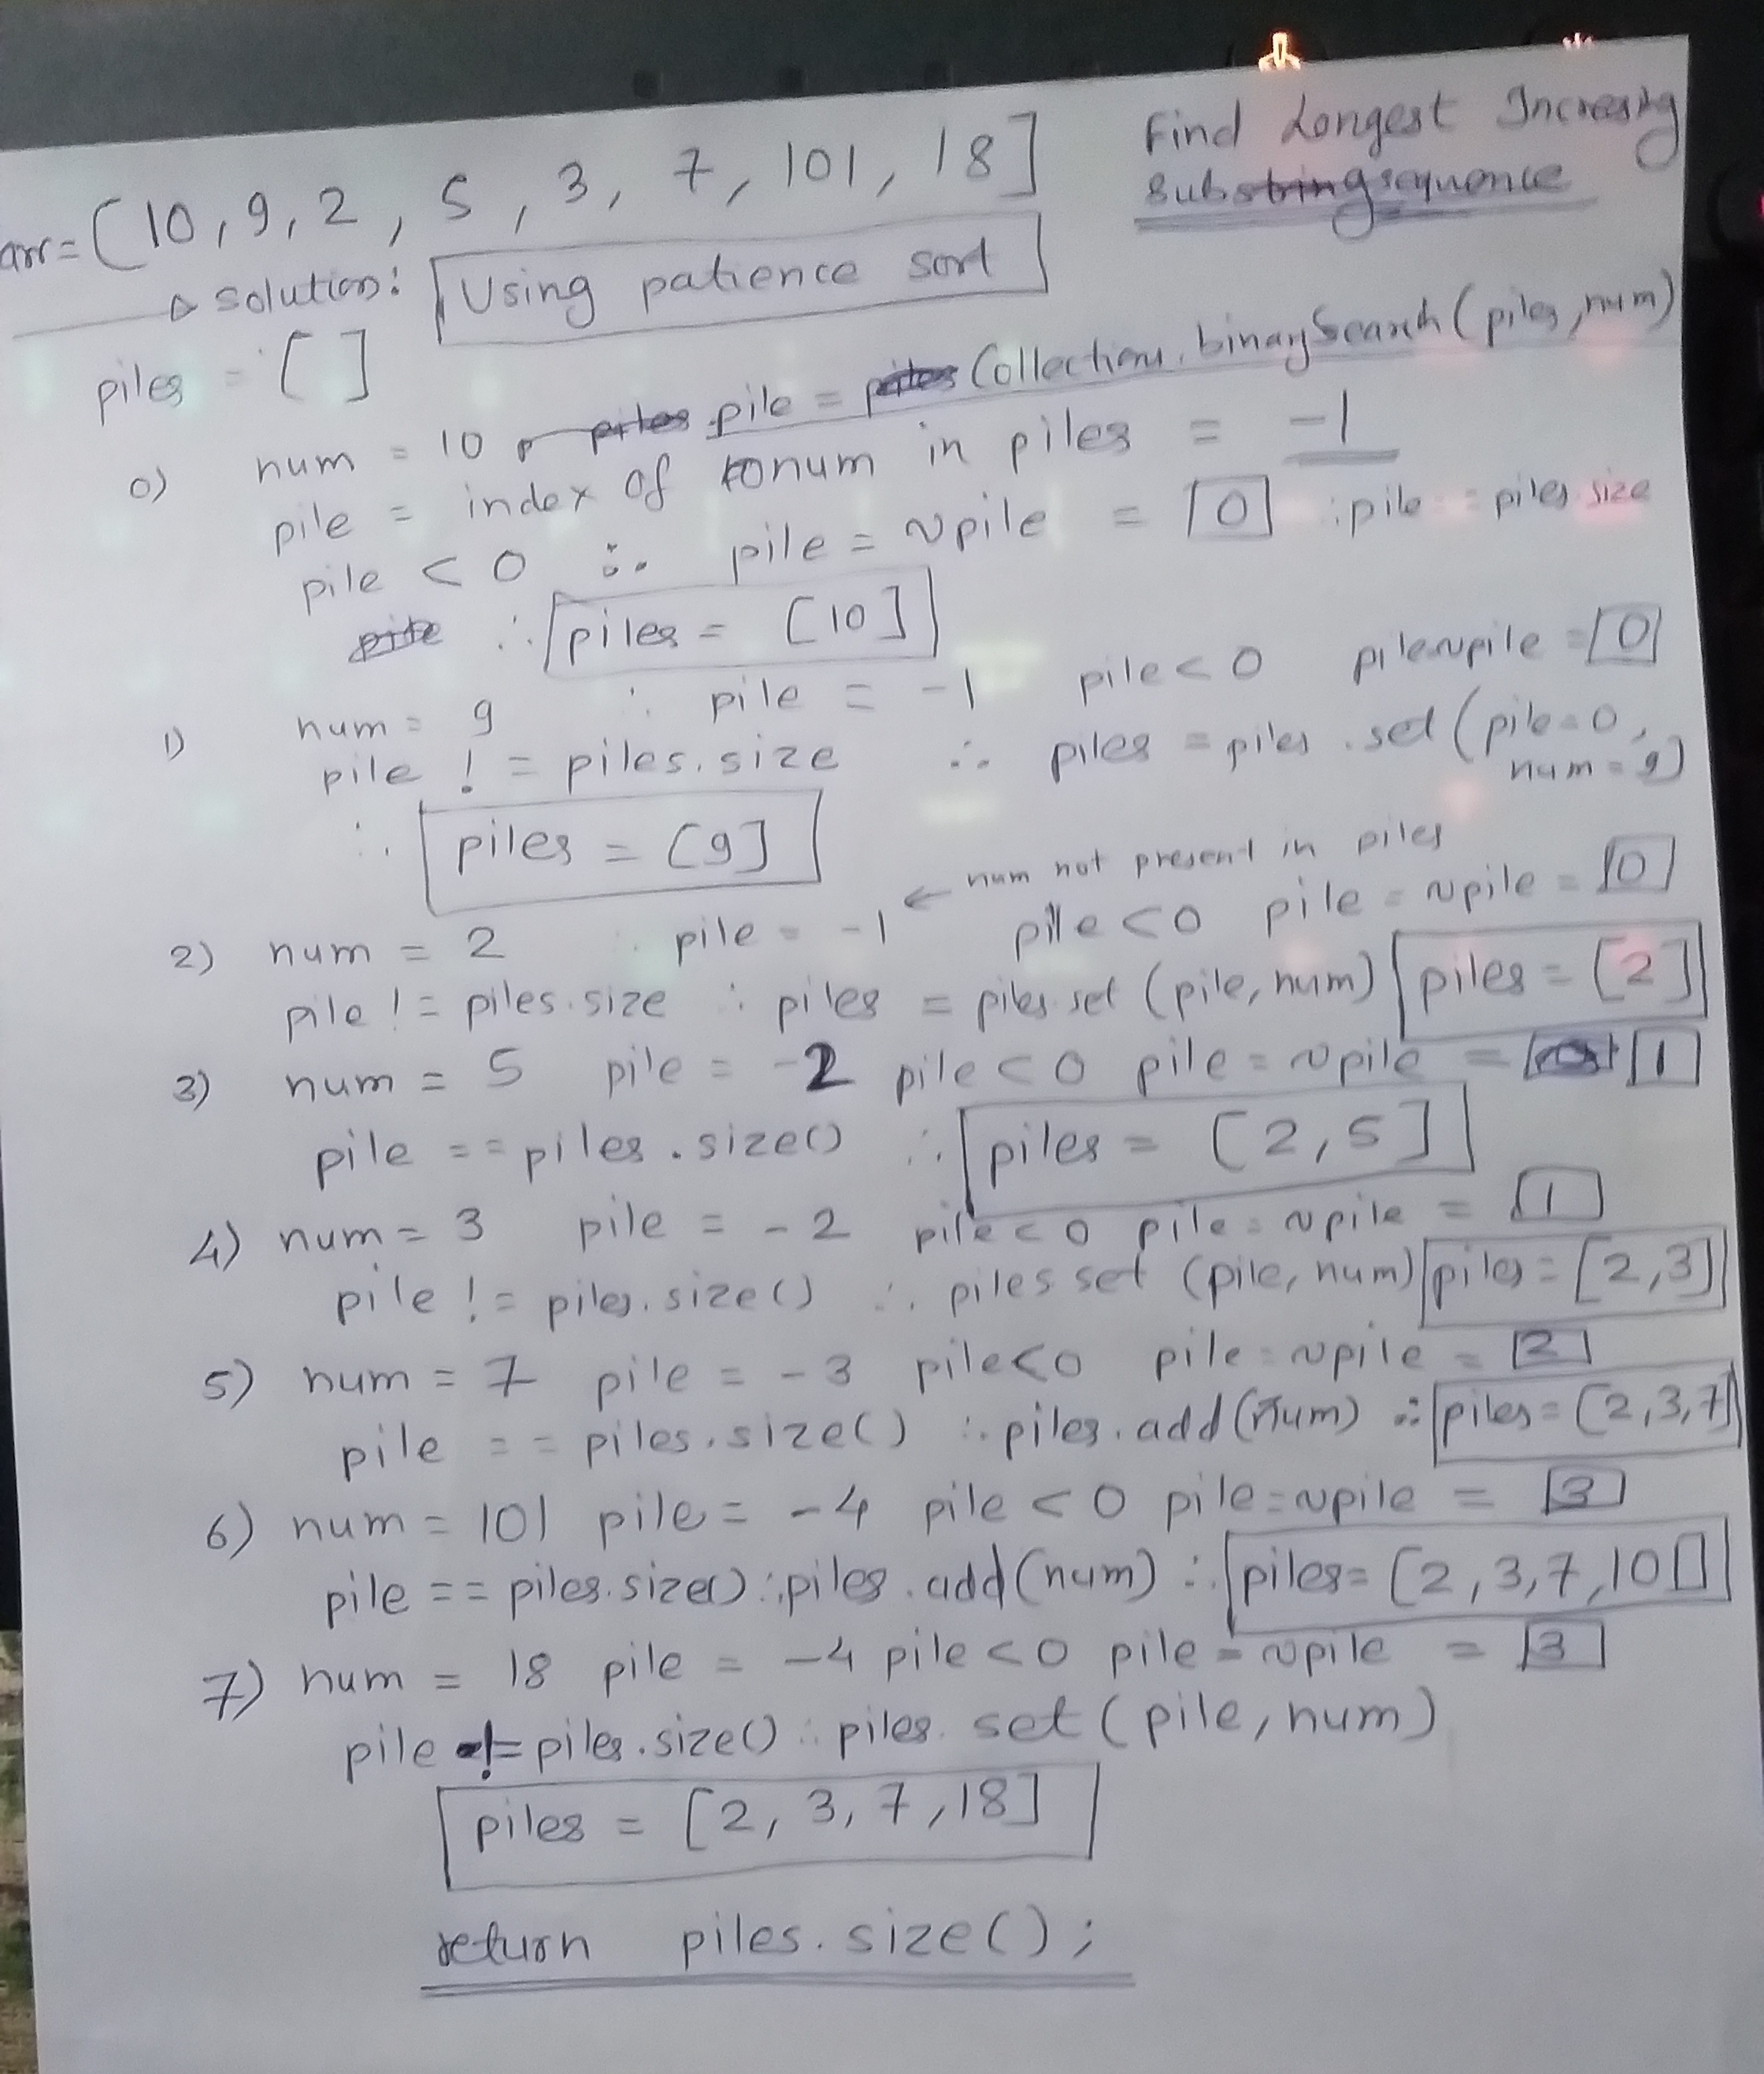 Find Longest Increasing
arr = [10, 9, 2, 5, 3, 7, 101, 18]
Substringsequence
solution: Using patience sort
piles = [ ]
0) num = 10 piles pile = piles Collections.binarySearch(piles, num)
pile = index of num in piles = -1
pile < 0 ∴ pile = ~pile = 0 ∵ pile = piles.size
pile ∴ piles = [10]
1) num = 9 ∴ pile = -1 pile < 0 pile=~pile = 0
pile != piles.size ∴ piles = piles.set(pile=0, num=9)
∴ piles = [9]
← num not present in piles
2) num = 2 ∴ pile = -1 pile < 0 pile = ~pile = 0
pile != piles.size ∴ piles = piles.set(pile, num) piles = [2]
3) num = 5 pile = -2 pile < 0 pile = ~pile = 1
pile == piles.size() ∴ piles = [2, 5]
4) num = 3 pile = -2 pile < 0 pile = ~pile = 1
pile != piles.size() ∴ piles set (pile, num) piles = [2, 3]
5) num = 7 pile = -3 pile < 0 pile = ~pile = 2
pile == piles.size() ∴ piles.add(num) ∴ piles = [2, 3, 7]
6) num = 101 pile = -4 pile < 0 pile = ~pile = 3
pile == piles.size() ∴ piles.add(num) ∴ piles = [2, 3, 7, 101]
7) num = 18 pile = -4 pile < 0 pile = ~pile = 3
pile != piles.size() ∴ piles.set(pile, num)
piles = [2, 3, 7, 18]
return piles.size();